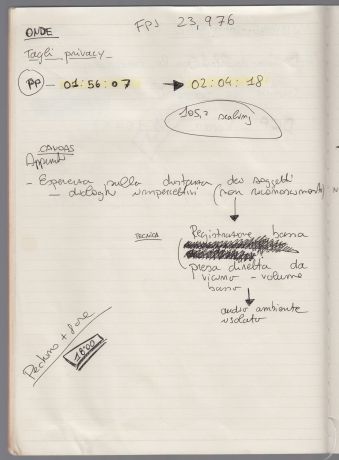 ONDE
FPS 23,976
Tagli privacy
PP - 01:56:07 → 02:04:18
105,2 scaling
CANVAS
Appunti
- Esperienza sulla distanza dei soggetti
- dialoghi impercettibili (non riconoscimento)
TECNICA
Registrazione bassa
presa diretta da
vicino - volume
basso
audio ambiente
isolato
18:00